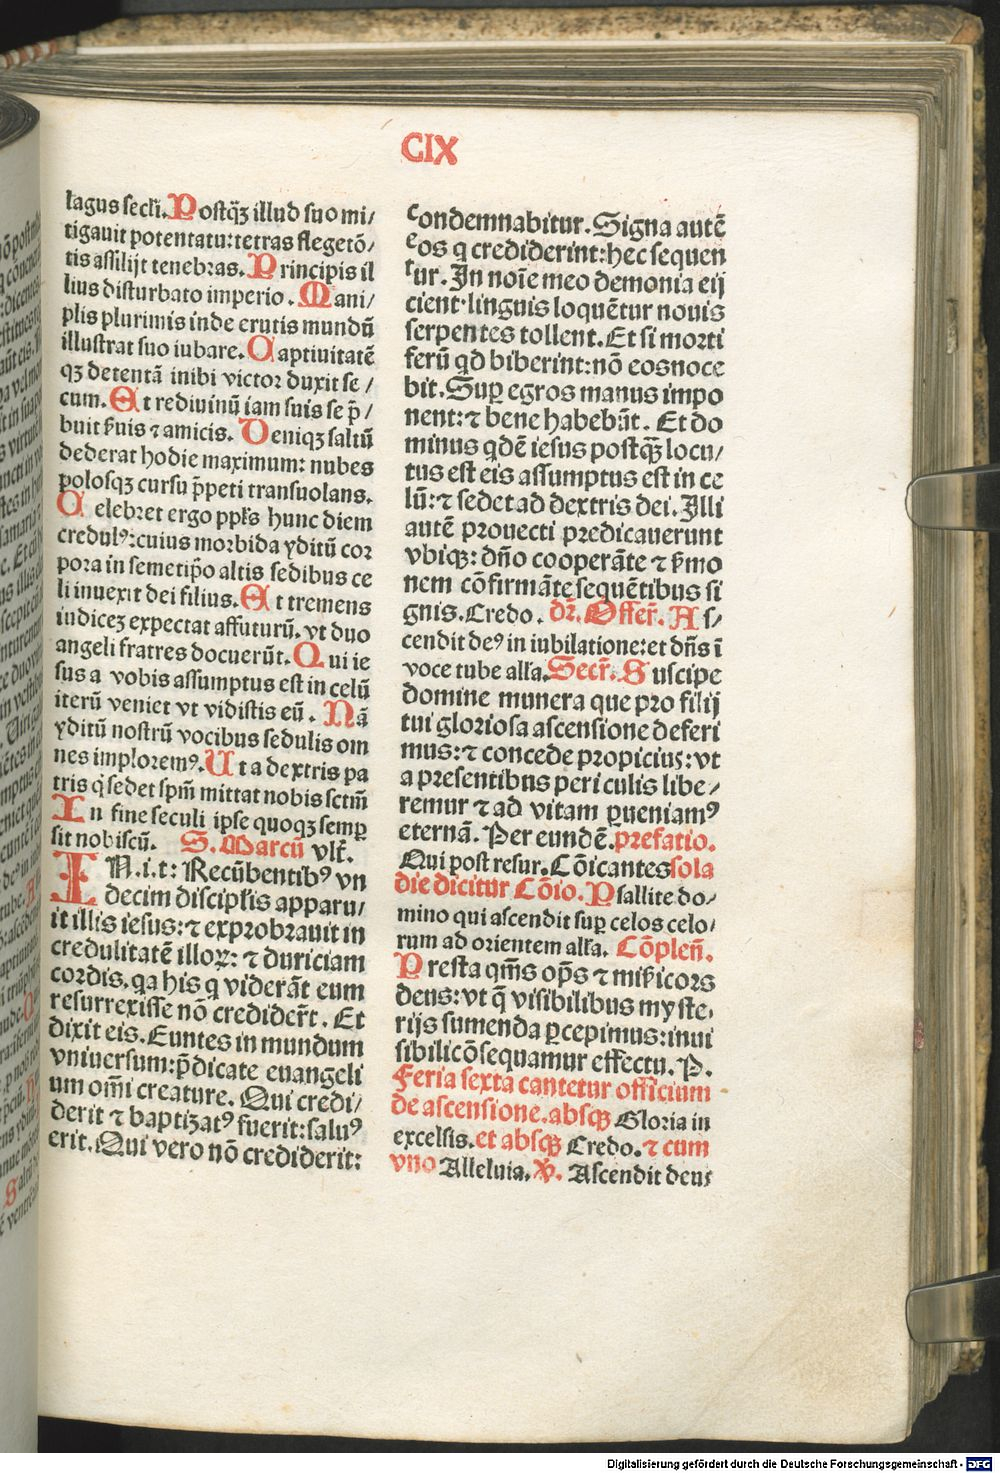 CIX
lagus secli. Postqȝ illud suo mi/
tigauit potentatu: tetras flegetō/
tis assilijt tenebras. Principis il
lius disturbato imperio. Mani/
plis plurimis inde erutis mundū
illustrat suo iubare. Captiuitatē
qȝ detentā inibi victor duxit se/
cum. Et rediuiuū iam suis se p̄/
buit ẜuis ⁊ amicis. Deniqȝ saltū
dederat hodie maximum: nubes
polosqȝ cursu p̄peti transuolans.
Celebret ergo ppl̄s hunc diem
credulꝰ: cuius morbida yditū cor
pora in semetip̄o altis sedibus ce
li inuexit dei filius. Et tremens
iudiceȝ expectat affuturū. vt duo
angeli fratres docuerūt. Qui ie
sus a vobis assumptus est in celū
iterū veniet vt vidistis eū. Nā
yditū nostrū vocibus sedulis om
nes imploremꝰ. Ut a dextris pa
tris q̄ sedet spm̄ mittat nobis sctm̄
In fine seculi ipse quoqȝ semꝑ
sit nobiscū. S. Marcū vlt̄.
IN.i.t: Recūbentibꝰ vn
decim discipl̄is apparu/
it illis iesus: ⁊ exprobrauit in
credulitatē illoꝝ: ⁊ duriciam
cordis. qa his q viderāt eum
resurrexisse nō crediderūt. Et
dixit eis. Euntes in mundum
vniuersum: p̄dicate euangeli
um om̄i creature. Qui credi/
derit ⁊ baptizatꝰ fuerit: saluꝰ
erit. Qui vero nō crediderit:
condemnabitur. Signa autē
eos q crediderint: hec sequen
tur. In noīe meo demonia eij
cient. linguis loquētur nouis
serpentes tollent. Et si morti
ferū qd biberint: nō eos noce
bit. Suꝑ egros manus impo
nent: ⁊ bene habebūt. Et do
minus qdē iesus postqȝ locu/
tus est eis assumptus est in ce
lū: ⁊ sedet ad dextris dei. Illi
autē prouecti predicauerunt
vbiqȝ: dn̄o cooperāte ⁊ ẜmo
nem cōfirmāte sequētibus si
gnis. Credo. dr̄. Offer̄. As/
cendit deꝰ in iubilatione: et dn̄s ī
voce tube alla. Secr̄. Suscipe
domine munera que pro filij
tui gloriosa ascensione deferi
mus: ⁊ concede propicius: vt
a presentibus periculis libe/
remur ⁊ ad vitam ꝑueniamꝰ
eternā. Per eundē. prefatio.
Qui post resur. Cōicantes sola
die dicitur Cōio. Psallite do/
mino qui ascendit suꝑ celos celo/
rum ad orientem alla. Cōplen̄.
Presta qm̄s op̄s ⁊ mis̄icors
deus: vt q̄ visibilibus myste/
rijs sumenda ꝑcepimus: inui
sibili cōsequamur effectu. P.
Feria sexta cantetur officium
de ascensione. absqȝ Gloria in
excelsis. et absqȝ Credo. ⁊ cum
vno Alleluia. ℣. Ascendit deus
Digitalisierung gefördert durch die Deutsche Forschungsgemeinschaft - DFG